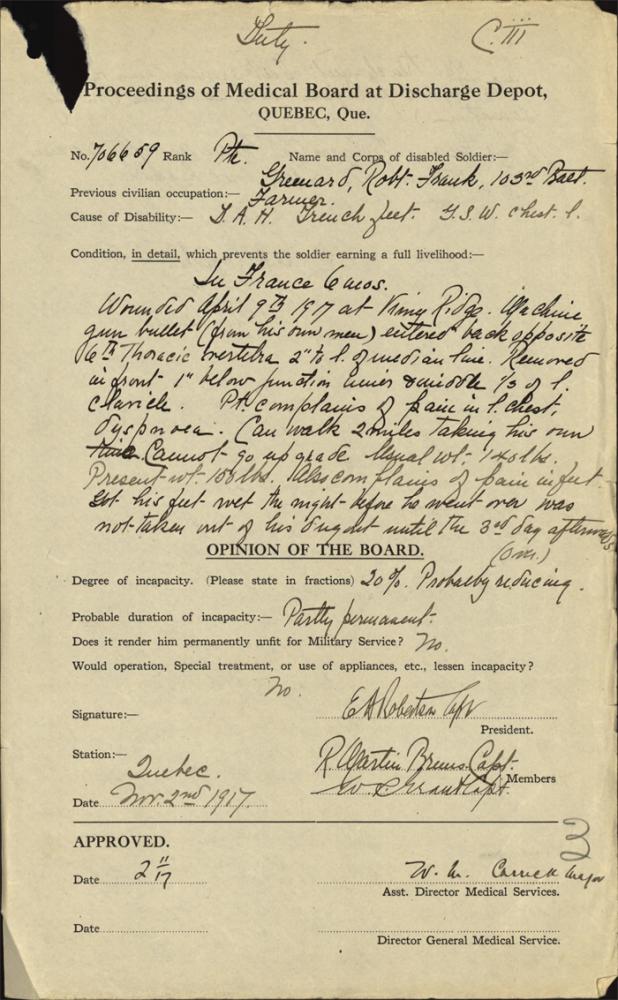 Duty.
C. III
Proceedings of Medical Board at Discharge Depot,
QUEBEC, Que.
No. 706659 Rank Pte. Name and Corps of disabled Soldier:—
Greenard, Robt. Frank, 103rd Batt.
Previous civilian occupation:— Farmer.
Cause of Disability:— D. A. H. Trench feet. G.S.W. chest. l.
Condition, in detail, which prevents the soldier earning a full livelihood:—
In France 6 mos.
Wounded April 9th 1917 at Vimy Ridge. Machine
gun bullet (from his own men) entered back opposite
6th Thoracic vertebra 2" to l. of median line. Removed
in front 1" below junction inner & middle 1/3 of l.
clavicle. Pt. complains of pain in l. chest,
dyspnoea. Can walk 2 miles taking his own
time. Cannot go up grade. Usual wt. 140 lbs.
Present wt. 108 lbs. Also complains of pain in feet
Got his feet wet the night before he went over was
not taken out of his dugout until the 3rd day afterwards
OPINION OF THE BOARD.
(over.)
Degree of incapacity. (Please state in fractions) 20%. Probably reducing.
Probable duration of incapacity:— Partly permanent.
Does it render him permanently unfit for Military Service? No.
Would operation, Special treatment, or use of appliances, etc., lessen incapacity?
No.
Signature:— E A Robertson Capt
President.
Station:— Quebec.
R. Martin Bruns. Capt.
Members
Capt.
Date Nov. 2nd 1917
3
APPROVED.
Date 2 11/17
W. M. Carrick Major
Asst. Director Medical Services.
Date
Director General Medical Service.